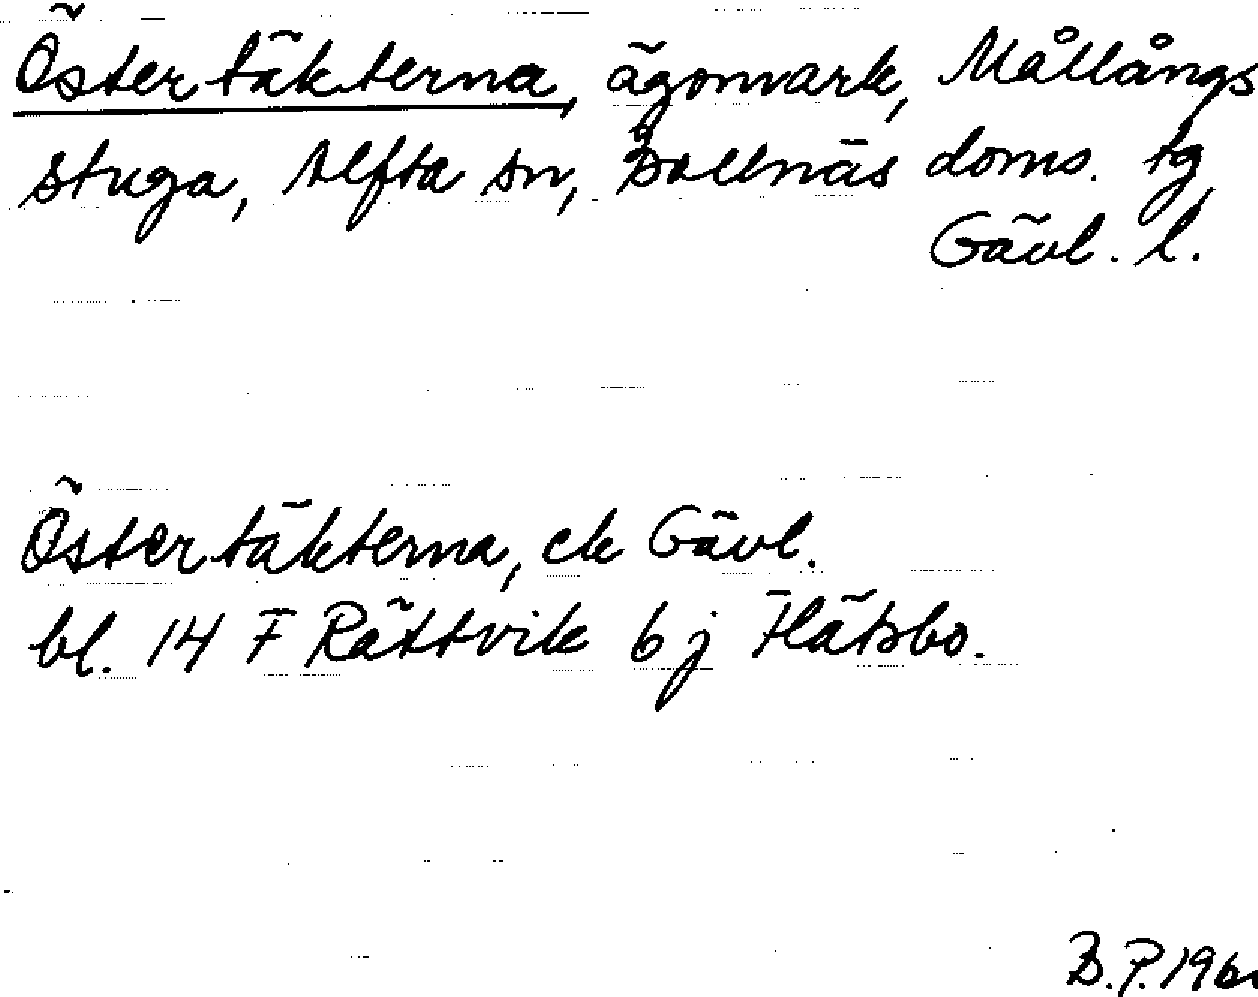 Östertäkterna, ägomark, Mållångs
stuga, Alfta sn, Bollnäs doms. tg,
Gävl. l.
Östertäkterna, ek Gävl.
bl. 14 F Rättvik 6 j Flätsbo.
B.P. 196